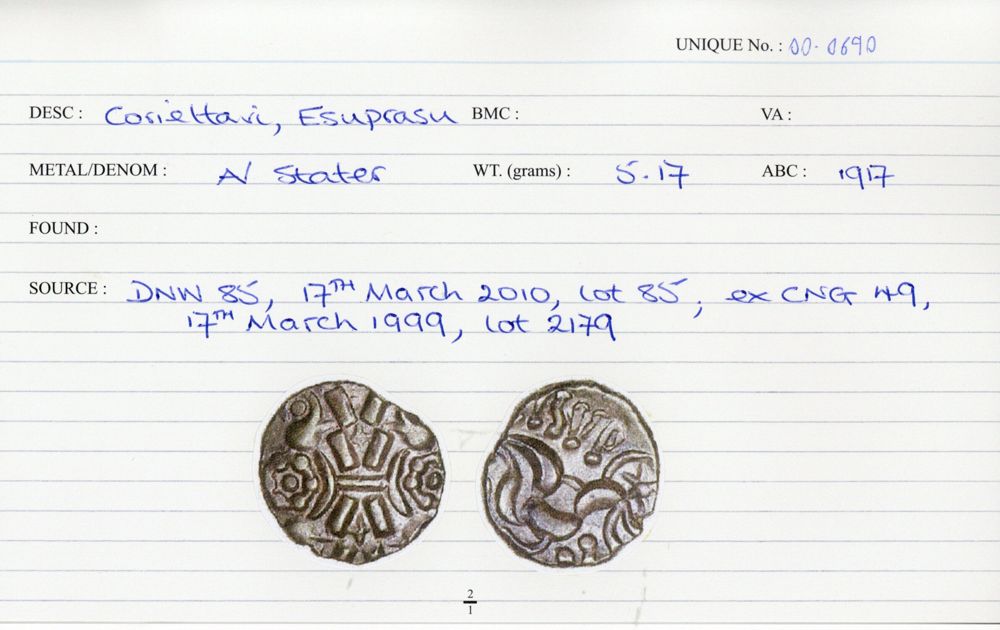 UNIQUE No. : 00-0690
DESC : Corieltavi, Esuprasu BMC : VA :
METAL/DENOM : A/ Stater WT. (grams) : 5.17 ABC : 1917
FOUND :
SOURCE : DNW 85, 17TH March 2010, lot 85, ex CNG 49,
17TH March 1999, lot 2179
2
1